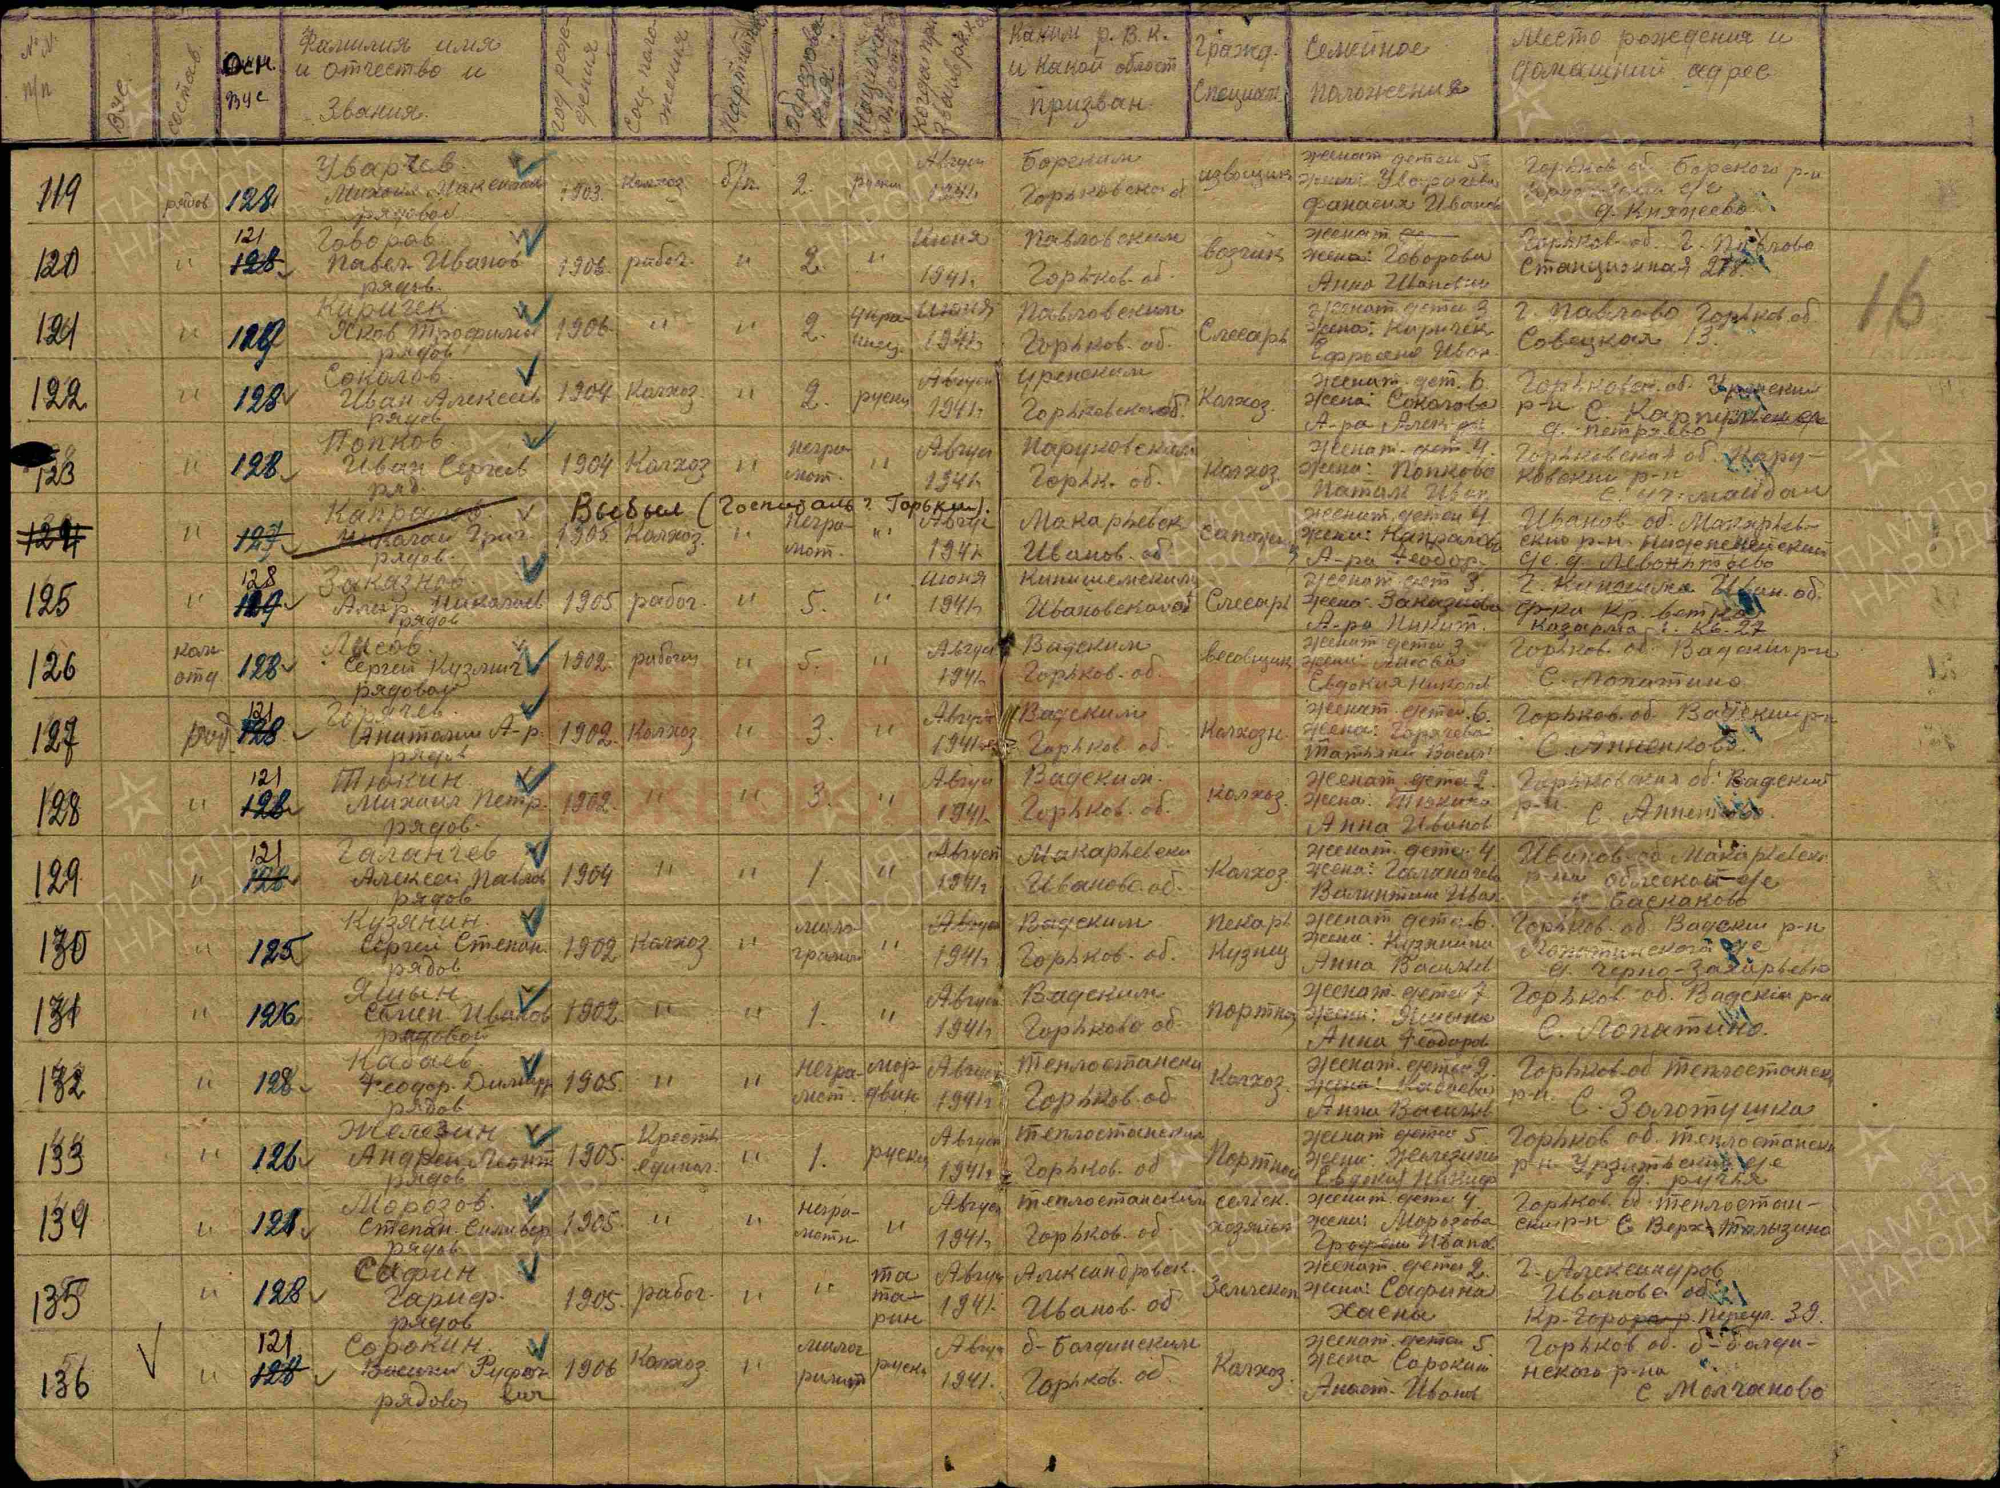 № № п/п
ВУС.
состав.
Осн. ВУС
Фамилия имя и отчество и Звания.
год рождения
Соц-положения
Партийн
Образования.
Национальность
когда призван
Каким Р.В.К. и какой област призван
Гражд. Специал.
Семейное положения
Место рождения и домашний адрес
16
119 рядов 128 Уварчев Михаил рядовой 1903. Колхоз б/п. 2. руски Август 1941г. Борским Горьковско об извощик женат детей 5. жена: Фанасия Иванов Горьков об. Борского р-н д. Княжево
120 " 121 128 Говоров Павел Иванов рядов. 1906. рабоч. " 2. " Июня 1941г. Павловским Горьков. об. возчик женат жена: Говорова Анна Горьков. об. г. Павлово Станционная 278
121 " 129 Киричек Яков Трофимов рядов 1906. " " 2. украинец. Июня 1941г. Павловским Горьков. об. Слесарь женат дети 3 жена: Киричек Ефросиня Иван. г. Павлово Горьков об Совецкая 13.
122 " 128 Соколов Иван Алексеев рядов 1904 Колхоз " 2. руски Август 1941г. Уренским Горьковской об. Колхоз. женат. дет. 6. жена: Соколова А-ра Алек Горьковс. об. Уренским р-н д. Петряево
123 " 128 Попков Иван Сергеев ряд. 1904 Колхоз " неграмот. " Август 1941г. Наруковским Горьк. об. Колхоз. женат. дет 4. жена: Попкова Натал. Иван. Горьковская об. Наруковский р-н С. Уч. Майдан
Выбыл (Госпиталь г. Горьким).
124 127 Капралов Николай Григ. рядов. 1905 Колхоз. " неграмот. " Авгус 1941г Макарьевск Иванов. об женат дети 4. жена: Капралова А-ра Феодор. Иванов. об. Макарьевский р-н. с/с. д. Левонтьево
125 " 128 129 Заказнов Алекр. Николаев рядов 1905 рабоч. " 5. " Июня 1941г. Кинишемским Ивановской об Слесарь женат дет 3. жена: Заказнова А-ра Никит. г. Кинешма Иван. об. ф-ка Кр. ветка Казарма 1. Кв. 27
126 ком. отд 128 Лисов Сергей Кузмич рядовой 1902. рабочи " 5. " Август 1941г. Вадским Горьков. об. весовщик женат дети 3. жена: Лисова Евдокия Николаев Горьков. об. Вадским р-н С. Лопатино
127 ряд 121 128 Горячев Анатолий А-р. рядов 1902. Колхоз " 3. " Август 1941г. Вадским Горьков. об. Колхозн. женат детей 6. жена: Горячева Татьяна Васил. Горьков. об. Вадским р-н С. Анненково
128 " 121 128 Тюкин Михаил Петр. рядов. 1902. " " 3. " Август 1941г. Вадским. Горьков. об. колхоз. женат дети 2. жена: Тюкина Анна Иванов Горьковская об. Вадский р-н. С. Анненково.
129 " 121 128 Галанчев Алексей Павлов рядов 1904 " " 1. " Август 1941г. Макарьевски Иваново. об. Колхоз. женат. дети 4 жена: Галанчева Валинтина Иван Иванов-об Макарьевск р-на с/с д. Баскаково
130 " 125 Кузянин Сергей Степан. рядов 1902 Колхоз " малограмот " Август 1941г. Вадским Горьков. об. Пекарь Кузнец женат дети 6. жена: Кузянина Анна Васильев Горьков. об. Вадским р-н Лопатинского с/с д. Черно-Захарьево
131 " 126 Яшын Семен Иванов рядовой 1902. " " 1. " Август 1941г. Вадским Горьково об. Портной женат. дети 7 жена: Яшына Анна Феодоров Горьков. об. Вадский р-н С. Лопатино.
132 " 128 Кабаев Феодор. Димитр рядов 1905. " " неграмот. мордвин Август 1941г. Теплостански Горьков. об Колхоз. женат. дети 2. жена: Кабаева Анна Васильев Горьков об Теплостанск р-н. С. Золотушка
133 " 126 Железин Андрей рядов 1905. Кресть единол. " 1. руски Август 1941г. Теплостанским Горьков. об Портной женат дети 5. жена: Железина Евдокия Никиф. Горьков об. Теплостански р-н с/с д. Ручья
134 " 121 Морозов. Степан. Силивер рядов 1905. " " неграмотн " Август 1941г. Теплостанским Горьков. об. сельск. хозяйств женат. дети 4 жена: Морозова Иванов Горьков. об. Теплостанским р-н С. Верх. Талызино
135 " 128 Сафин Гариф. рядов 1905. рабоч. " " татарин Август 1941. Александровск. Иванов. об Землекоп женат. дети 2. жена: Сафина Хасны г. Александров Иваново об. Переул. 39.
136 " 121 128 Сорокин. Василий Руфович рядовой 1906 Колхоз " малограмот руски Август 1941. б-Болдинским Горьков. об. Колхоз. женат. дети 5 жена Сорокин Анаст. Иванов Горьков об. б-Болдинского р-на С Молчаново